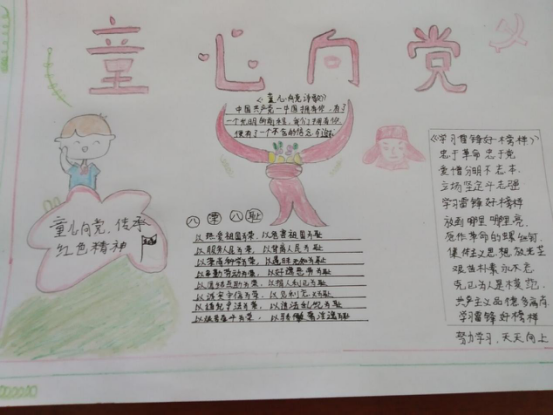 童心向党
《童心向党诗歌》
中国共产党一中国拥有你，有了
一个光明的前程，我们拥有你
便有了一个不离的信念
童心向党，传承
红色精神
八荣八耻
以热爱祖国为荣，以危害祖国为耻
以服务人民为荣，以背离人民为耻
以崇尚科学为荣，以愚昧无知为耻
以辛勤劳动为荣，以好逸恶劳为耻
以团结互助为荣，以损人利己为耻
以诚实守信为荣，以见利忘义为耻
以遵纪守法为荣，以违法乱纪为耻
以艰苦奋斗为荣，以骄奢淫逸为耻
《学习雷锋好榜样》
忠于革命忠于党
爱憎分明不忘本
立场坚定斗志强
学习雷锋好榜样
放到哪里哪里亮
愿作革命的螺丝钉
集体主义思想放光芒
艰苦朴素永不忘
克己为人是模范
共产主义品德多高尚
学习雷锋好榜样
努力学习，天天向上